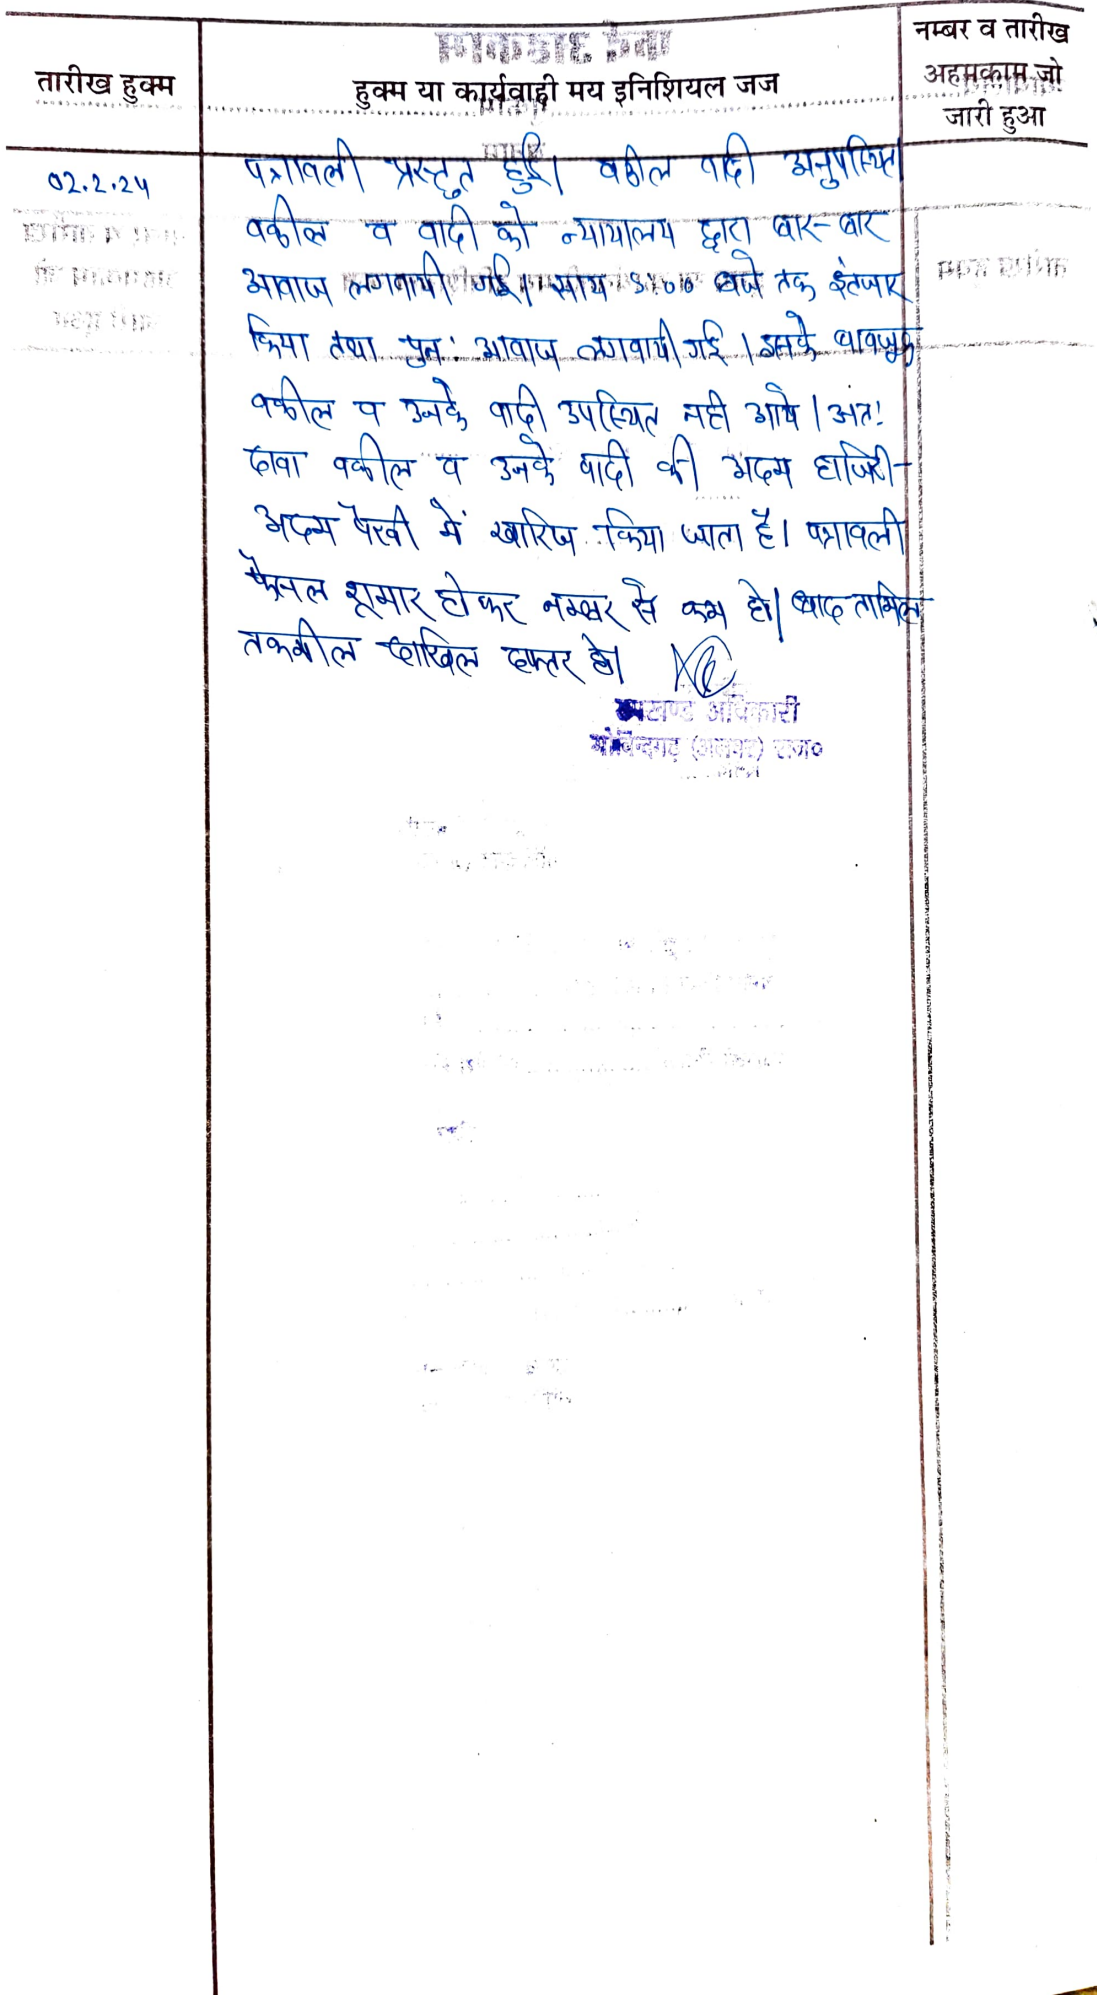 तारीख हुक्म
हुक्म या कार्यवाही मय इनिशियल जज
नम्बर व तारीख
अहमकाम जो
जारी हुआ
02.2.24
पत्रावली प्रस्तुत हुई। वकील वादी अनुपस्थित
वकील व वादी को न्यायालय द्वारा बार-बार
आवाज लगवायी गई। साय 5:00 बजे तक इंतजार
किया तथा पुनः आवाज लगवायी गई। इसके बावजूद
वकील व उनके वादी उपस्थित नही आये। अतः
दावा वकील व उनके वादी की अदम हाजिरी-
अदम पैरवी में खारिज किया जाता है। पत्रावली
फैसल शूमार होकर नम्बर से कम हो। बाद तामिल
तकमील दाखिल दफ्तर हो।
उपखण्ड अधिकारी
गोविन्दगढ़ (अलवर) राज०